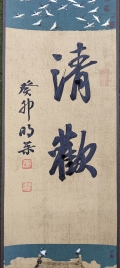 清歡
癸卯明棠